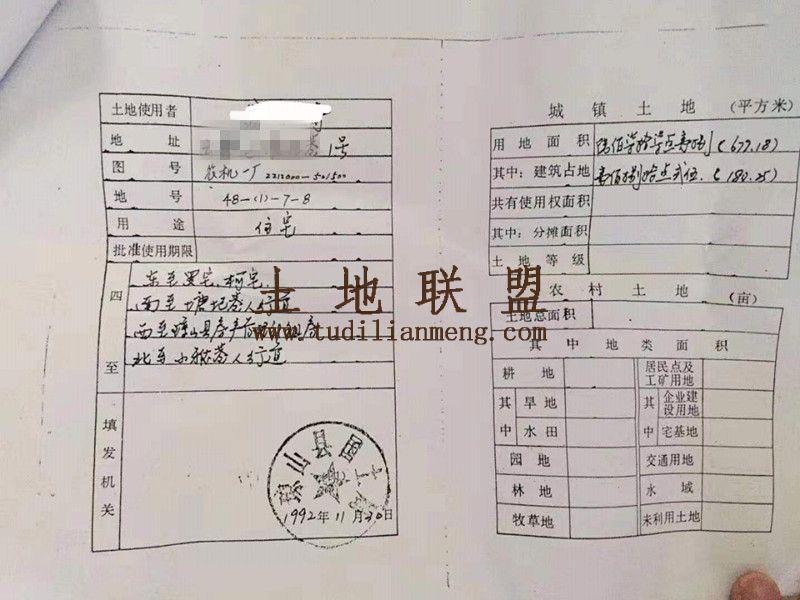 土地使用者
地 址 1号
图 号 农机一厂 2212000-501500
地 号 48-(1)-7-8
用 途 住宅
批准使用期限
四至
东至罗宅、柯宅
南至塘圯巷人行道
西至 县房产
北至 巷人行道
填发机关
山县国土
1992年11月20日
城镇土地 (平方米)
用地面积 陆佰柒拾柒点壹捌 (677.18)
其中：建筑占地 壹佰捌拾点贰伍 (180.25)
共有使用权面积
其中：分摊面积
土地等级
农村土地 (亩)
土地总面积
其中地类面积
耕 地 居民点及工矿用地
其中 旱地 其中 企业建设用地
水田 宅基地
园 地 交通用地
林 地 水 域
牧草地 未利用土地
土地联盟
www.tudilianmeng.com